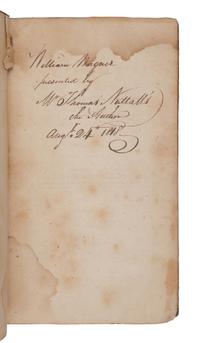 William Wagner
presented by
Mr Thomas Nuttall's
the Author
Augt 24th